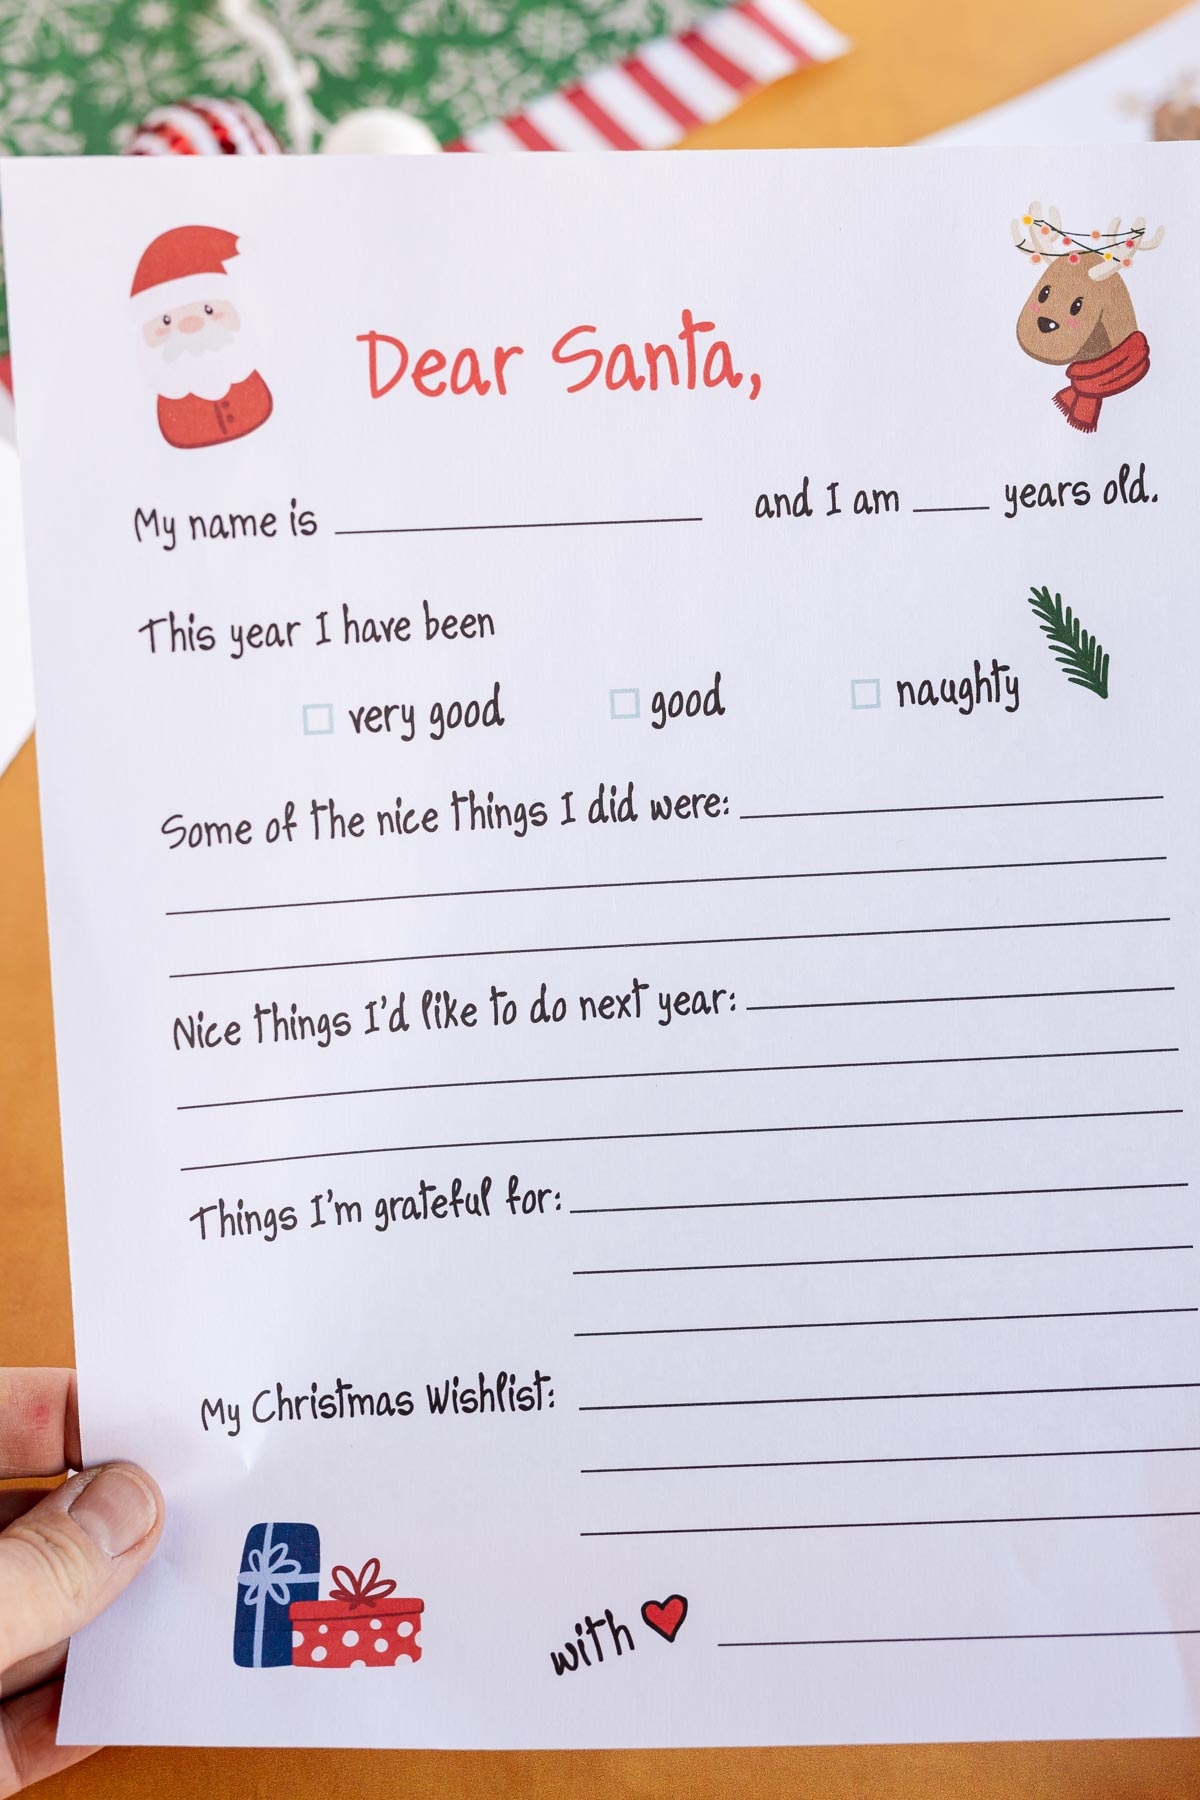 Dear Santa,
My name is ____ and I am ____ years old.
This year I have been
very good good naughty
Some of the nice things I did were:
Nice things I'd like to do next year:
Things I'm grateful for:
My Christmas Wishlist:
with